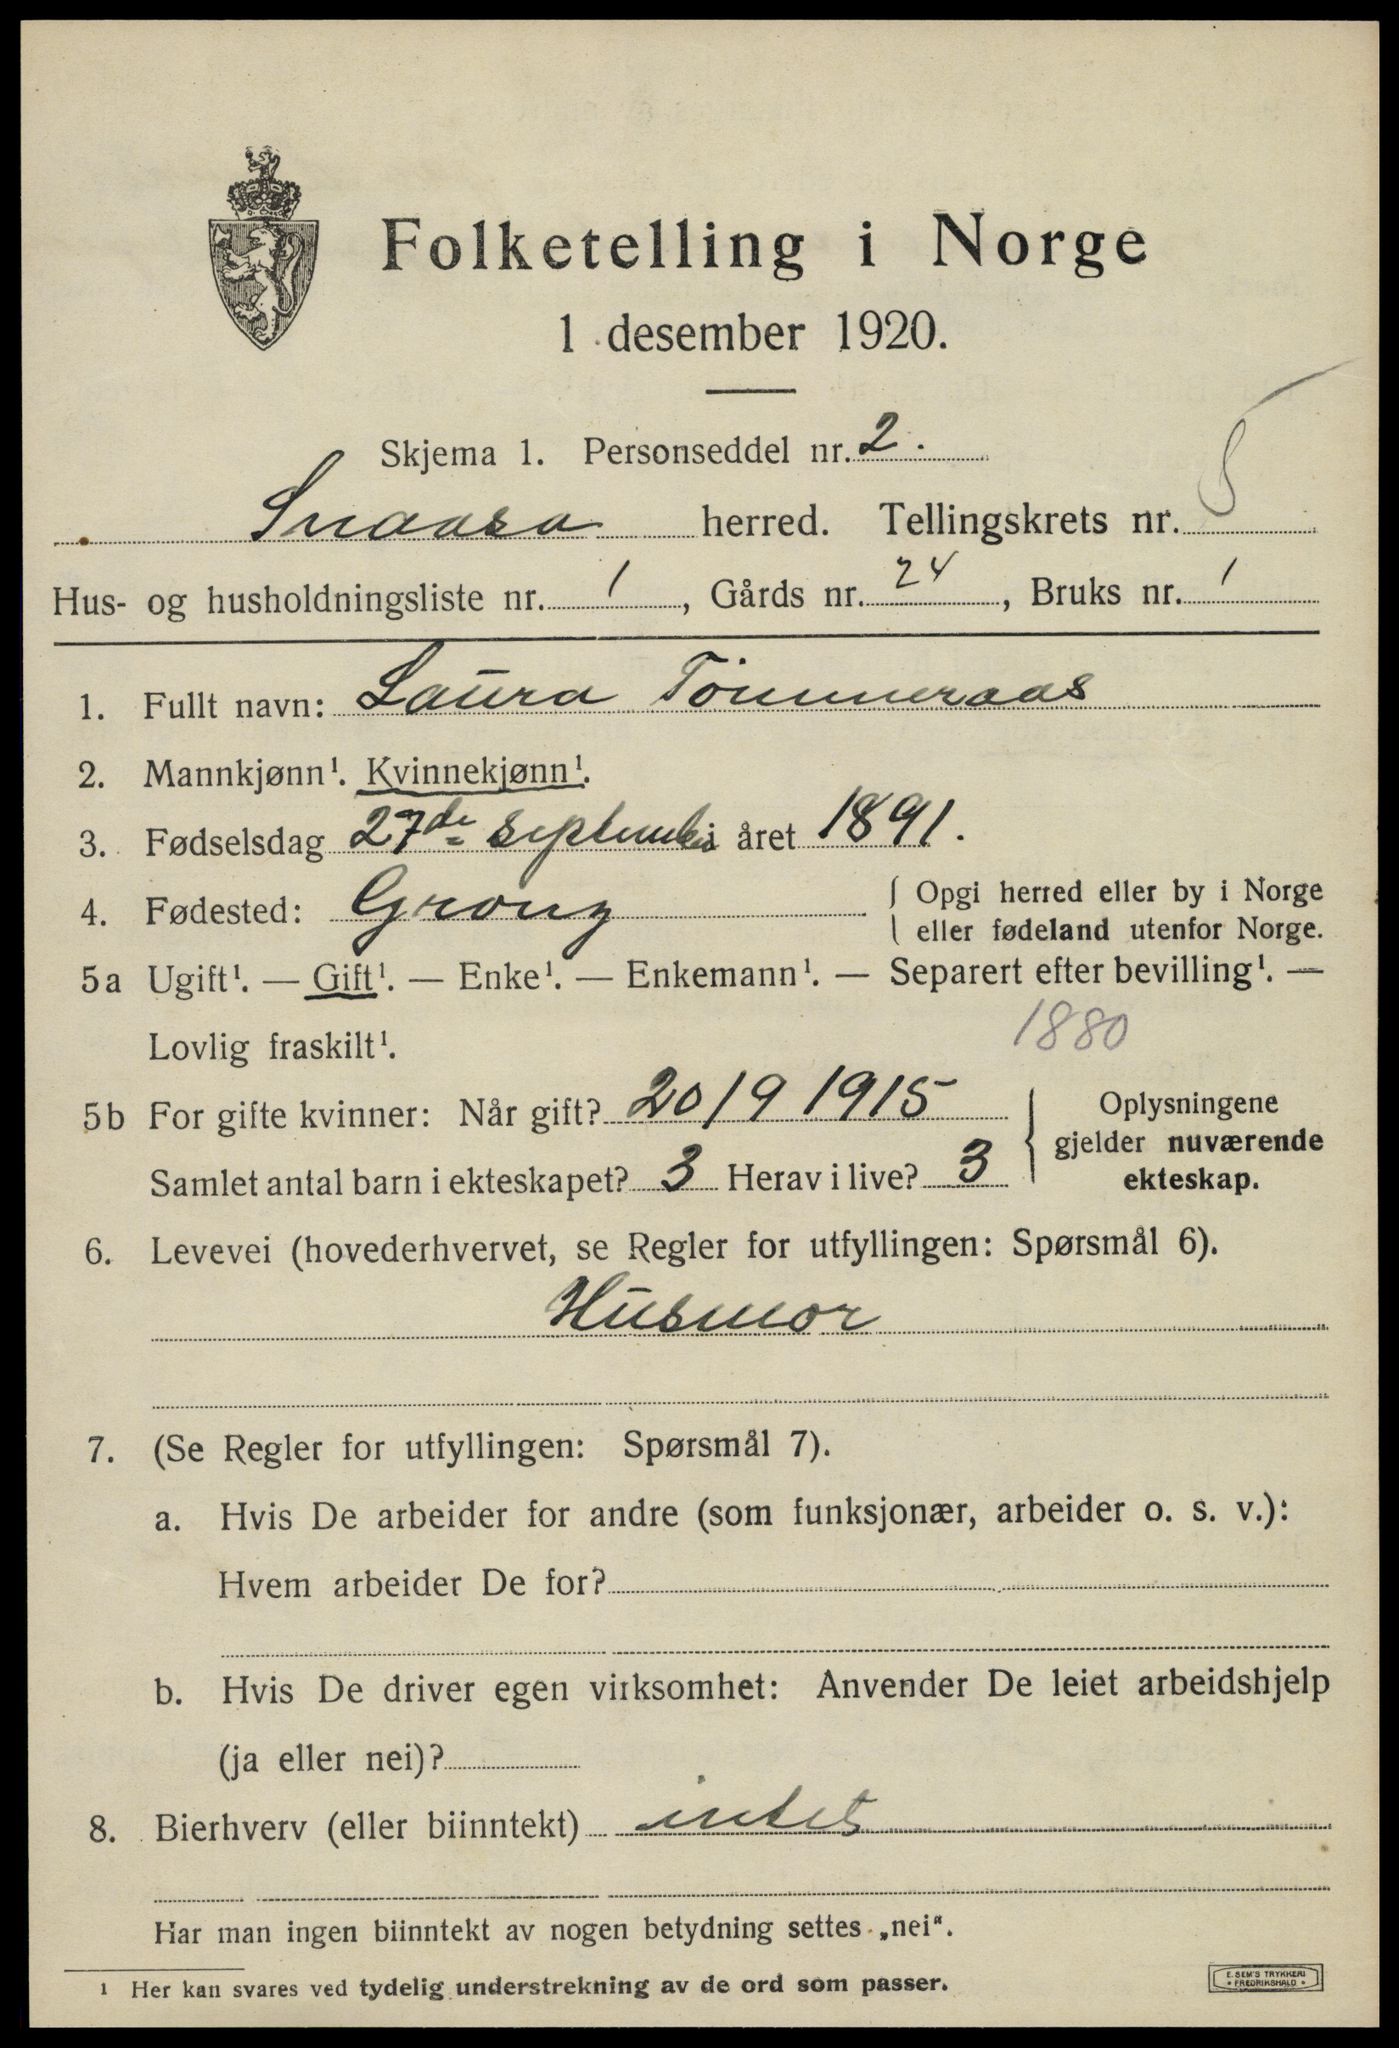 Folketelling i Norge
1 desember 1920.
Skjema 1. Personseddel nr. 2.
Snaasa herred. Tellingskrets nr. 5
Hus- og husholdningsliste nr. 1, Gårds nr. 24, Bruks nr. 1
1. Fullt navn: Laura Tömmeraas
2. Mannkjønn¹. Kvinnekjønn¹.
3. Fødselsdag 27de september i året 1891.
4. Fødested: Grong { Opgi herred eller by i Norge
eller fødeland utenfor Norge.
5a Ugift¹. — Gift¹. — Enke¹. — Enkemann¹. — Separert efter bevilling¹. —
Lovlig fraskilt¹.
1880
5b For gifte kvinner: Når gift? 20/9 1915 { Oplysningene
gjelder nuværende
ekteskap.
Samlet antal barn i ekteskapet? 3 Herav i live? 3
6. Levevei (hovederhvervet, se Regler for utfyllingen: Spørsmål 6).
Husmor
7. (Se Regler for utfyllingen: Spørsmål 7).
a. Hvis De arbeider for andre (som funksjonær, arbeider o. s. v.):
Hvem arbeider De for?
b. Hvis De driver egen virksomhet: Anvender De leiet arbeidshjelp
(ja eller nei)?
8. Bierhverv (eller biinntekt) intet
Har man ingen biinntekt av nogen betydning settes „nei“.
¹ Her kan svares ved tydelig understrekning av de ord som passer.
E. SEM'S TRYKKERI
• FREDRIKSHALD •